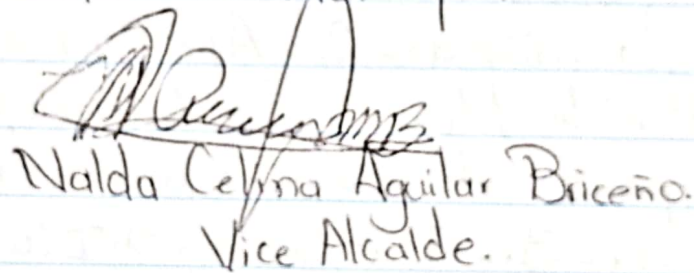 Nalda Celina Aguilar Briceño.
Vice Alcalde.